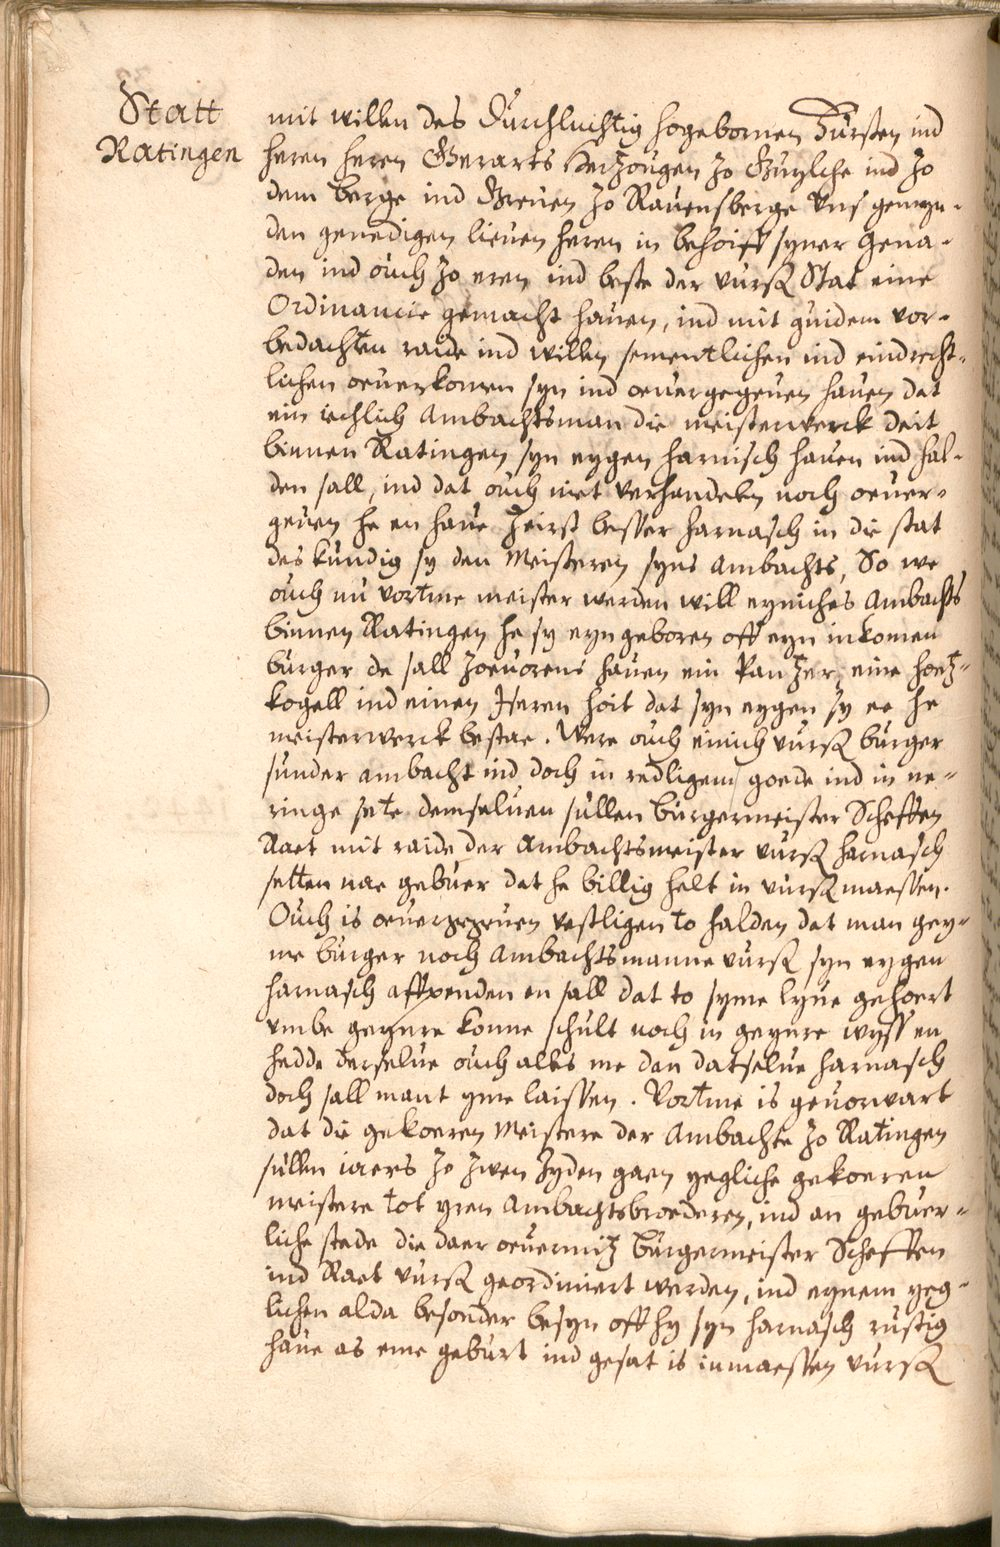 Statt
Ratingen
mit willen des Durchluchtig hogebornen Fürsten ind
heren heren Gerarts Hertzougen zo Guylche ind zo
dem berge ind Greuen zo Rauensberge Uns gemyn-
den genedigen lieuen heren in behoiff syner Gena-
den ind ouch zo eren ind beste der vurß Stat eine
Ordinancie gemacht hauen, ind mit guidem vor-
bedachten raide ind willen sementlichen ind eindrecht-
lichen oeuerkomen syn ind oeuergegeuen hauen dat
ein iechlich Ambachtsman die meisterwerck deit
binnen Ratingen syn eygen harnisch hauen ind hal-
den sall, ind dat ouch niet verhandelen noch oeuer-
geuen he en haue zeirst besser harnasch in die stat
des kundig sy den Meisteren syns Ambachts, So we
ouch nu vortme meister werden will eyniches Ambachts
binnen Ratingen he sy eyngeboren off eyn inkomen
burger de sall zoeuorens hauen ein Pantzer, eine hoetz-
kogell ind einen Iseren hoit dat syn eygen sy ee he
meisterwerck bestae. Were ouch einich vurß burger
sunder ambacht ind doch in redligem goede ind in ne-
ringe sete demseluen sullen Burgermeister Scheffen
Raet mit raide der Ambachtsmeister vurß harnasch
setten nae gebuer dat he billig helt in vurß maessen.
Ouch is oeuergegeuen vestligen to halden dat man gey-
ne burger noch Ambachtsmanne vurß syn eygen
harnasch affpenden en sall dat to syme lyue gehoert
vmbe geynre konne schult noch in geynre wyss en
hedde derselue ouch alles me dan datselue harnasch
doch sall mant yme laissen. Vortme is geuorwart
dat die gekoeren Meistere der Ambachte zo Ratingen
sullen iaers zo zwen zyden gaen yegliche gekoeren
meistere tot yren Ambachtsbroederen, ind an gebuer-
liche stede die daer oeuermitz Burgermeister Scheffen
ind Raet vurß geordiniert werden, ind eynem yeg-
lichen alda besonder besyn off hy syn harnasch rustig
haue as eme geburt ind gesat is inmaessen vurß